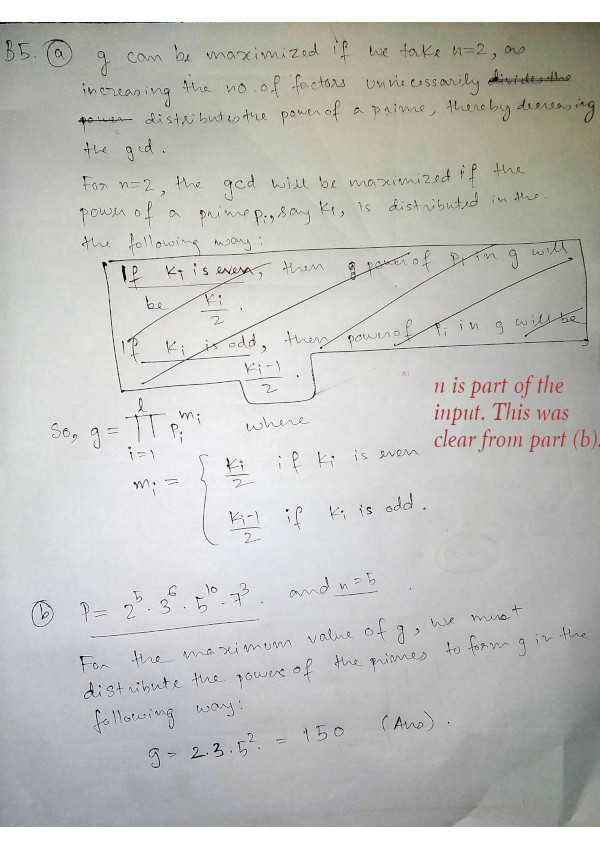 B5. (a) g can be maximized if we take n=2, as
increasing the no. of factors unnecessarily divides the
power distributes the power of a prime, thereby decreasing
the gcd.
For n=2, the gcd will be maximized if the
power of a prime pi, say Ki, is distributed in the
the following way:
If Ki is even, then g power of Pi in g will
be Ki/2.
If Ki is odd, then power of Pi in g will be
Ki-1/2.
n is part of the
input. This was
clear from part (b).
So, g = l∏i=1 Pi^mi where
mi = { Ki/2 if Ki is even
Ki-1/2 if Ki is odd.
(b) P = 2^5 . 3^6 . 5^10 . 7^3. and n=5
For the maximum value of g, we must
distribute the power of the primes to form g in the
following way:
g = 2.3.5^2. = 150 (Ans).